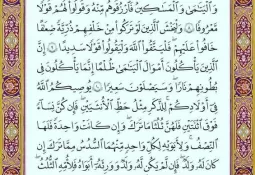 وَٱلْيَتَٰمَىٰ وَٱلْمَسَٰكِينُ فَٱرْزُقُوهُم مِّنْهُ وَقُولُوا۟ لَهُمْ قَوْلًا
مَّعْرُوفًا ٨ وَلْيَخْشَ ٱلَّذِينَ لَوْ تَرَكُوا۟ مِنْ خَلْفِهِمْ ذُرِّيَّةً ضِعَٰفًا
خَافُوا۟ عَلَيْهِمْ فَلْيَتَّقُوا۟ ٱللَّهَ وَلْيَقُولُوا۟ قَوْلًا سَدِيدًا ٩ إِنَّ
ٱلَّذِينَ يَأْكُلُونَ أَمْوَٰلَ ٱلْيَتَٰمَىٰ ظُلْمًا إِنَّمَا يَأْكُلُونَ فِى
بُطُونِهِمْ نَارًا وَسَيَصْلَوْنَ سَعِيرًا ١٠ يُوصِيكُمُ ٱللَّهُ
فِىٓ أَوْلَٰدِكُمْ لِلذَّكَرِ مِثْلُ حَظِّ ٱلْأُنثَيَيْنِ فَإِن كُنَّ نِسَآءً
فَوْقَ ٱثْنَتَيْنِ فَلَهُنَّ ثُلُثَا مَا تَرَكَ وَإِن كَانَتْ وَٰحِدَةً فَلَهَا
ٱلنِّصْفُ وَلِأَبَوَيْهِ لِكُلِّ وَٰحِدٍ مِّنْهُمَا ٱلسُّدُسُ مِمَّا تَرَكَ إِن
كَانَ لَهُۥ وَلَدٌ فَإِن لَّمْ يَكُن لَّهُۥ وَلَدٌ وَوَرِثَهُۥٓ أَبَوَاهُ فَلِأُمِّهِ ٱلثُّلُثُ